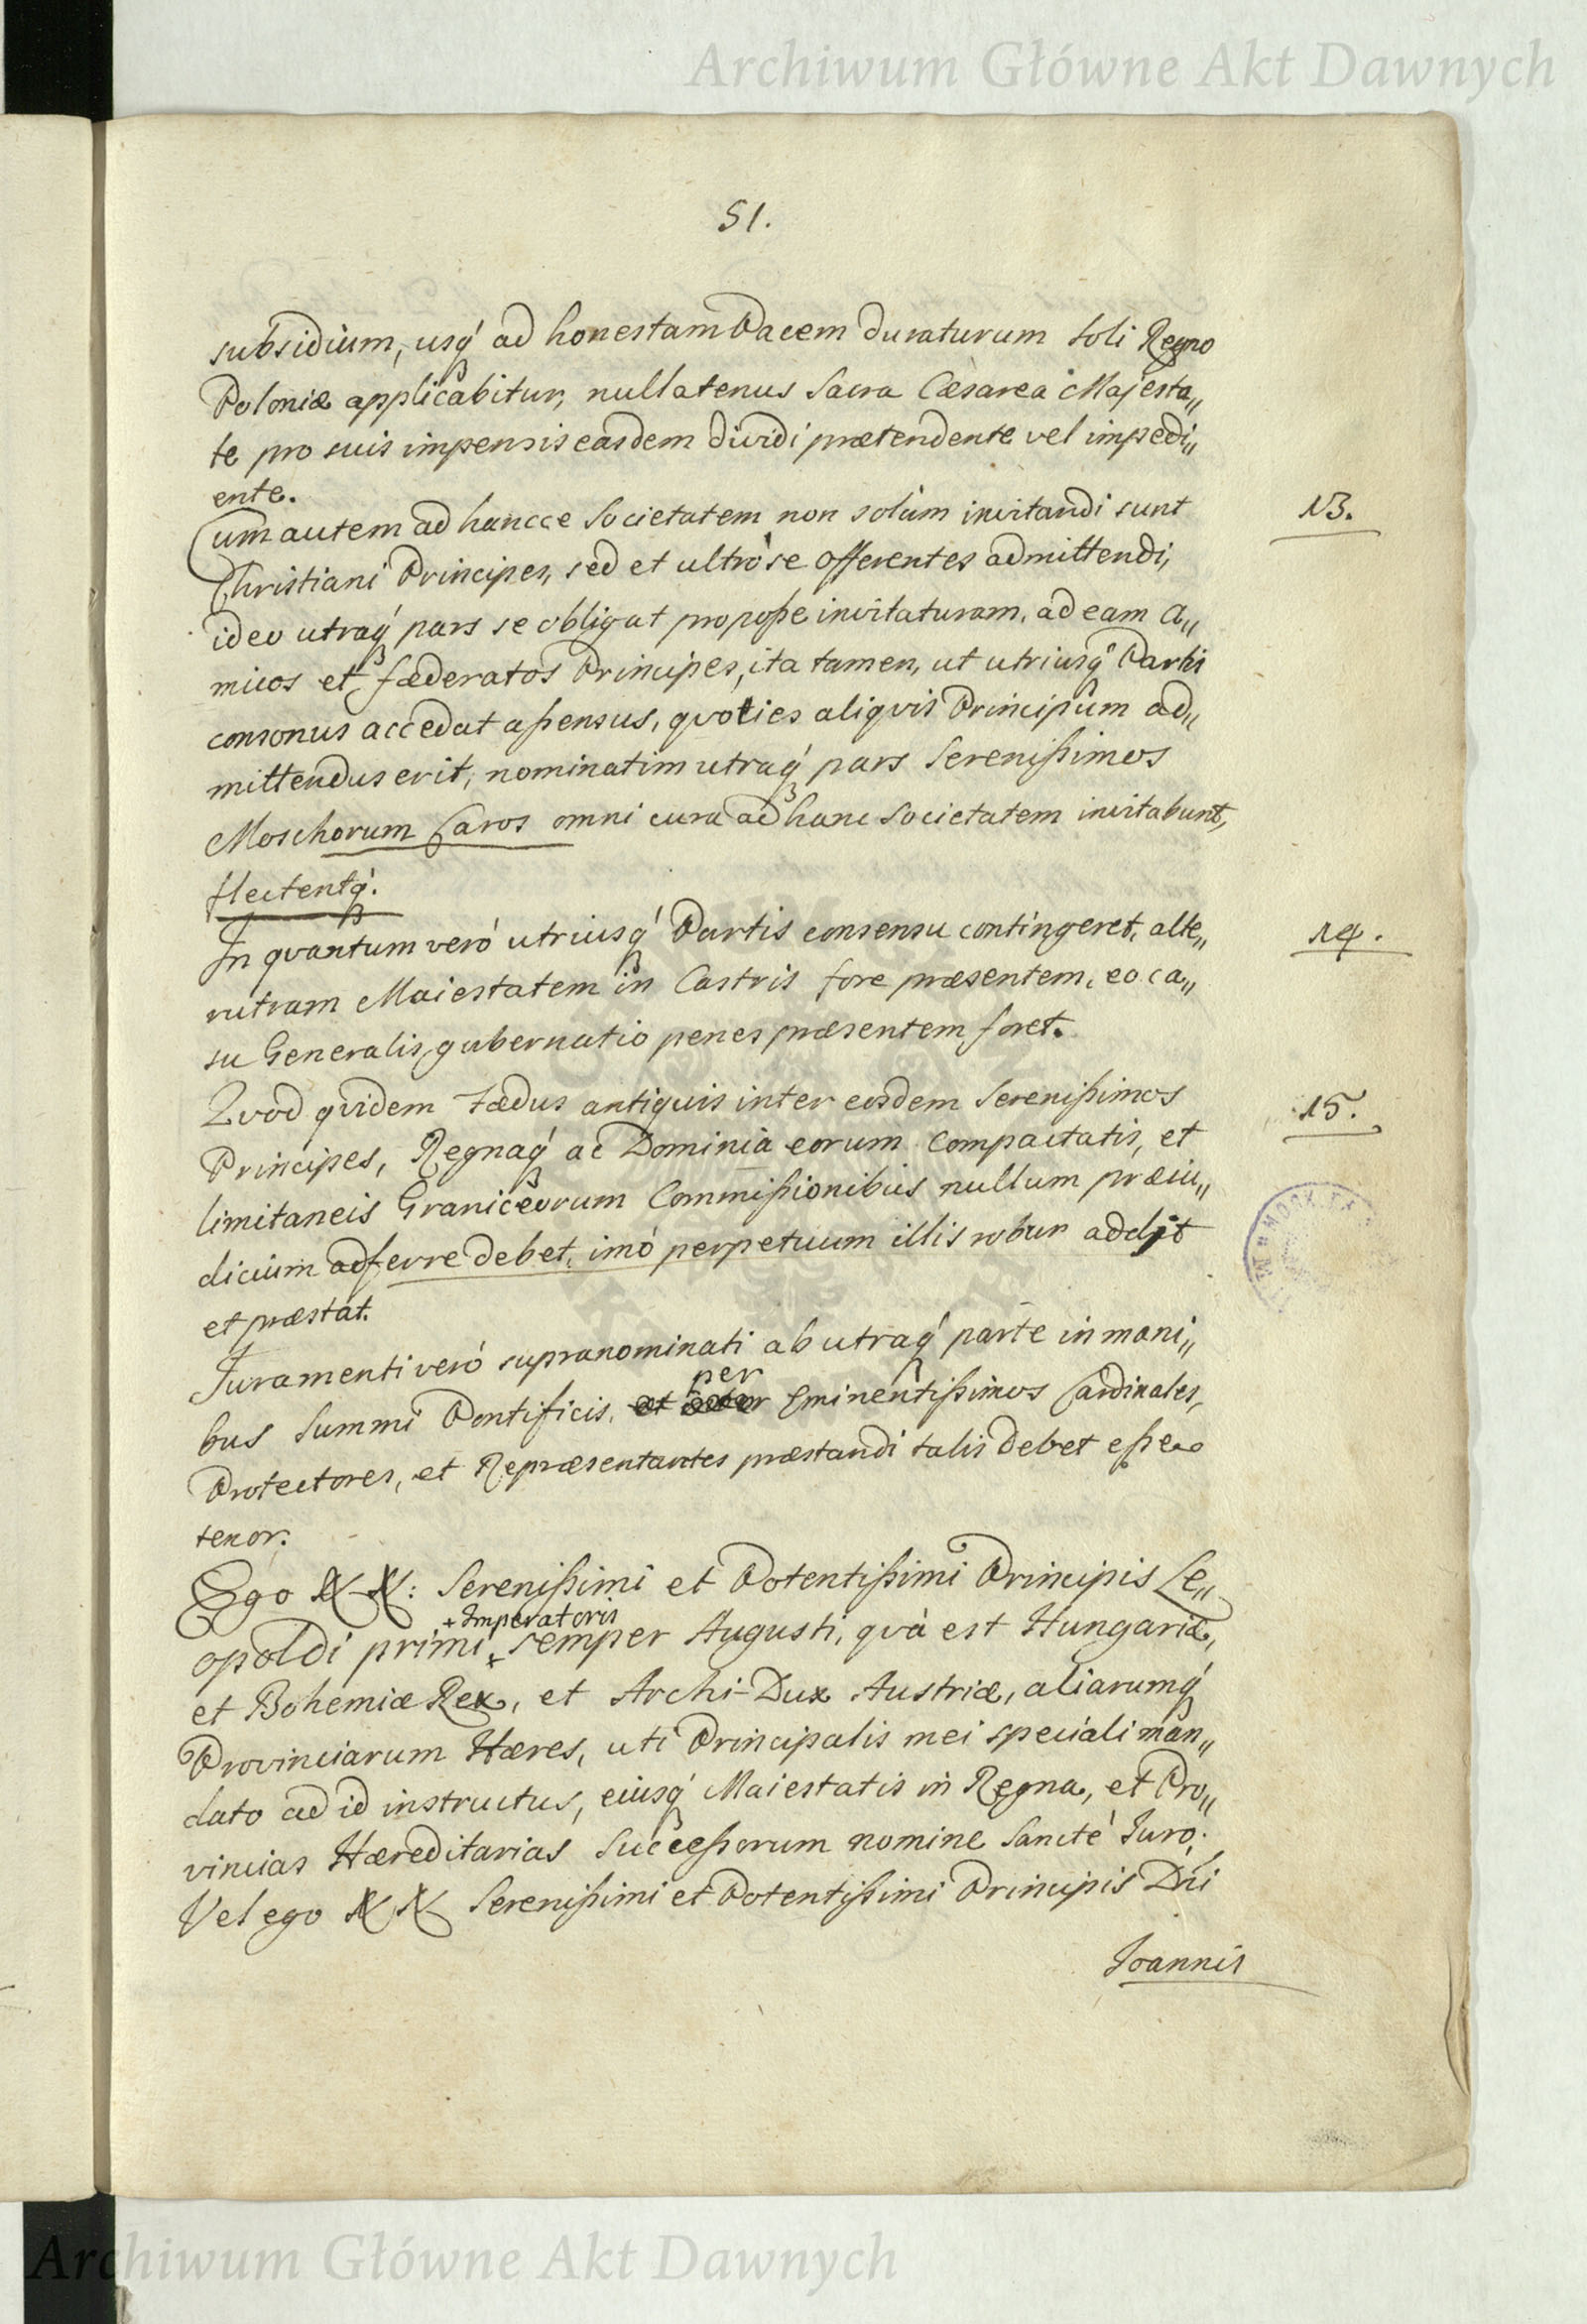 Archiwum Główne Akt Dawnych
51.
subsidium, usq́ ad honestam Pacem duraturum soli Regno
Poloniæ applicabitur, nullatenus Sacra Cæsarea Majesta„
te pro suis impensis easdem dividi prætendente vel impedi„
ente.
Cum autem ad hancce Societatem non solùm invitandi sunt
13.
Christiani Principes, sed et ultrò se offerentes admittendi,
ideo utraq́ pars se obligat pro poße invitaturam, ad eam A„
micos et fæderatos Principes, ita tamen, ut utriusq́ Partis
consonus accedat aßensus, quoties aliqvis Principum ad„
mittendus erit, nominatim utraq́ pars Serenißimos
Moschorum Czaros omni cura ad hanc Societatem invitabunt,
flectentq́.
In qvantum verò utriusq́ Partis consensu contingeret, alte„
14.
rutram Maiestatem in Castris fore præsentem, eo ca„
su Generalis gubernatio penes præsentem foret.
Qvod qvidem Fædus antiquis inter eosdem Serenißimos
15.
Principes, Regnaq́ ac Dominia eorum Compactatis, et
limitaneis Graniceorum Commißionibus nullum præiu„
dicium adferre debet, imò perpetuum illis robur addit
et præstat.
Juramenti verò supranominati ab utraq́ parte in mani„
per
bus Summi Pontificis, et Eminentißimos Cardinales,
Protectores, et Repræsentantes præstandi talis debet eße
tenor.
Ego N N: Serenißimi et Potentißimi Principis Le„
+ Imperatoris
opoldi primi + semper Augusti, qvà est Hungariæ,
et Bohemiæ Rex, et Archi-Dux Austriæ, aliarumq́
Provinciarum Hæres, uti Principalis mei speciali man„
dato ad id instructus, eiusq́ Maiestatis in Regna, et Pro„
vincias Hæreditarias Succeßorum nomine Sanctè Juro.
Vel ego N N Serenißimi et Potentißimi Principis Dńi
Joannis
Archiwum Główne Akt Dawnych